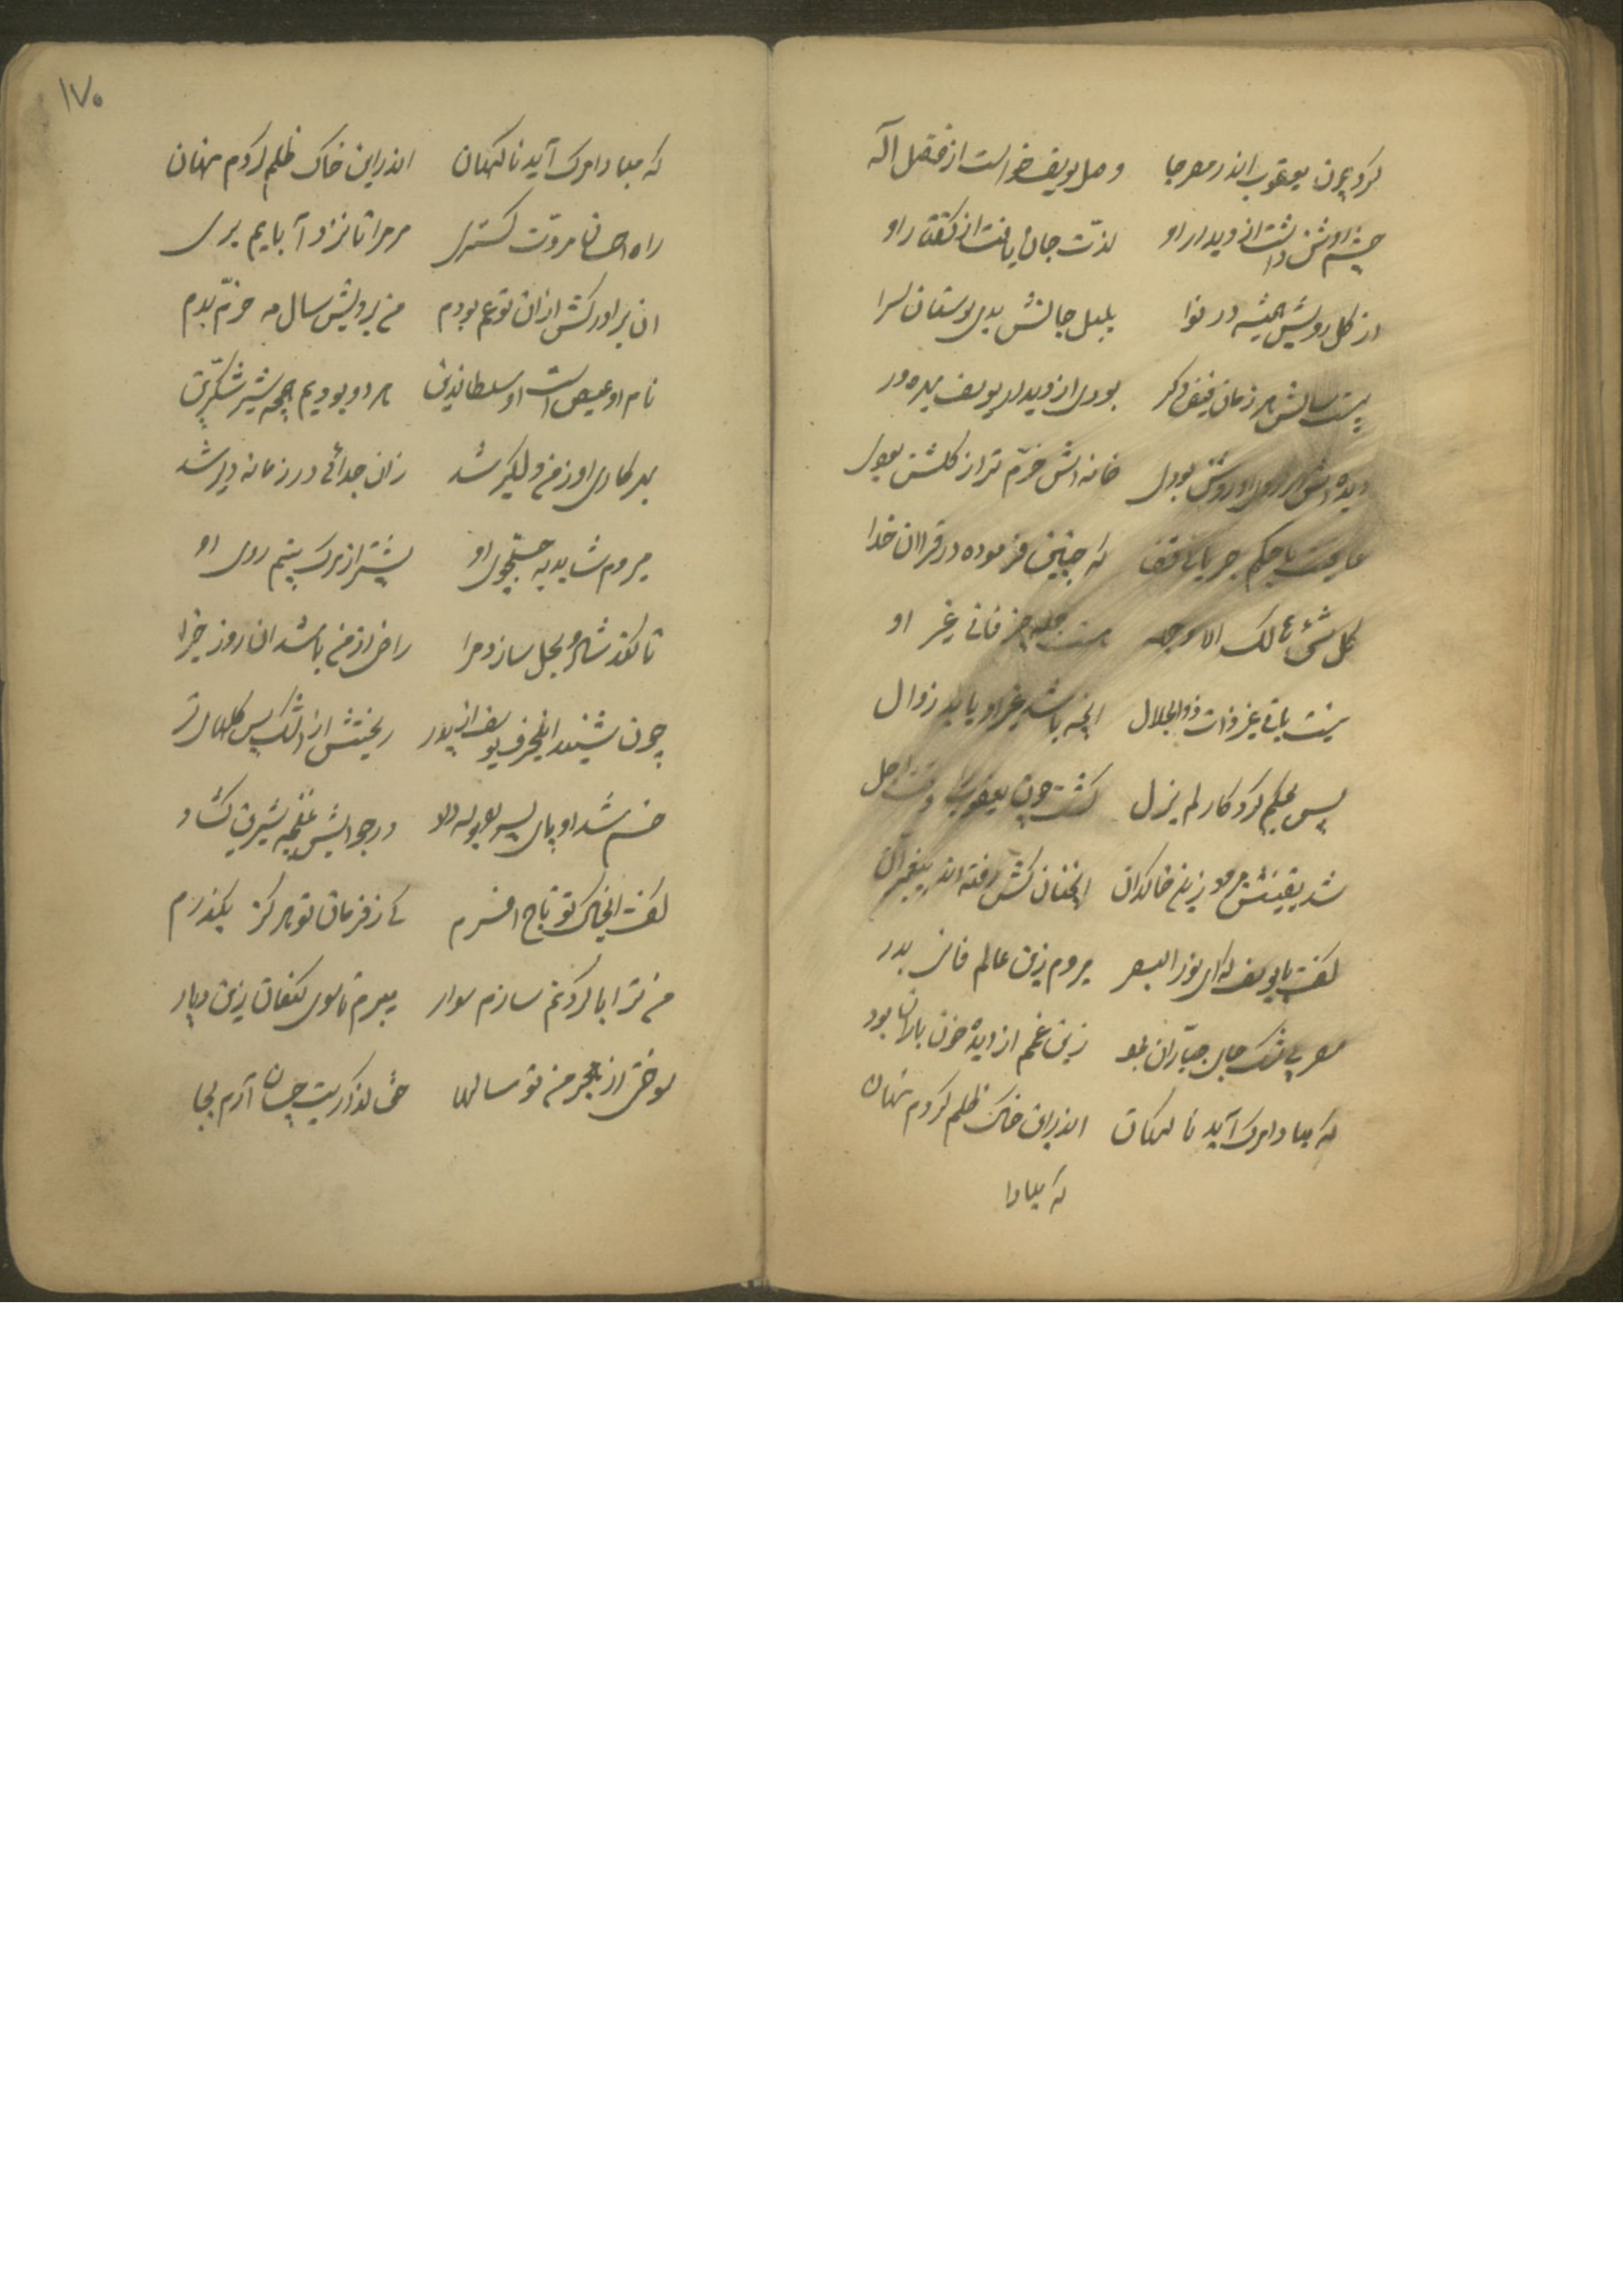 کرد چون یعقوب اندر مصر جا وصل یوسف خواست از فضل اله
چشم روشن داشت از دیدار او لذت جان یافت از گفتار او
از گل رویش همیشه در نوا بلبل جانش بدی بوستان سرا
بیست سالش هر زمان بودی از دیدار یوسف بهره ور
دیده اش از روی او روشن بودی خانه اش خرم تر از گلشن بودی
عاقبت با حکم که چنین فرموده در قران خدا
کل شیء هالک الا وجهه هست جمله چیز فانی غیر او
نیست باقی غیر ذات ذوالجلال انچه باشد غیر او یابد زوال
پس بحکم کردکار لم یزل گشت چون یعقوب را وقت اجل
شد یقینش زین خاکدان انچنان کش رفته اند پیغمبران
گفت با یوسف که ای نور البصر میروم زین عالم فانی بدر
مصر جای جباران بود زین غمم از دیده خون باران بود
که مبادا مرک آید ناگهان اندراین خاک ظلم گردم نهان
که مبادا
۱۷۰
که مبادا مرک آید ناکهان اندراین خاک ظلم گردم نهان
راه احسان مروت گستری مر مرا تا نزد آبایم بری
ان برادر کش از ان توءم بودم من برویش سال و مه خرم بدم
نام او عیص است او سلطان دین هر دو بودیم همچه شیر شکرین
او ز من دلگیر شد زان جدائی در زمانه دیر شد
میروم شاید به جستجوی او پیشتر از مرک بینم روی او
تا نکند شرم و بحل سازد مرا راضی از من باشد ان روز جزا
چون شنید اینحرف یوسف از پدر ریختش از اشک پس گلهای تر
خم شد او پای پسر بوسه داد در جوابش غنچه شیرین گشاد
گفت ایخاک تو تاج افسرم کی ز فرمان تو هرکز بگذرم
من ترا با گردنم سازم سوار میبرم تا سوی کنعان زین دیار
سوختی از هجر من تو سالها حق گذاریت چسان آرم بجا